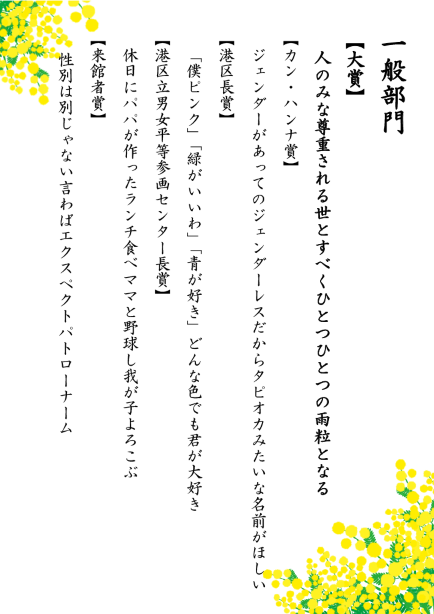 一般部門
【大賞】
人のみな尊重される世とすべくひとつひとつの雨粒となる
【カン・ハンナ賞】
ジェンダーがあってのジェンダーレスだからタピオカみたいな名前がほしい
【港区長賞】
「僕ピンク」「緑がいいわ」「青が好き」どんな色でも君が大好き
【港区立男女平等参画センター長賞】
休日にパパが作ったランチ食べママと野球し我が子よろこぶ
【来館者賞】
性別は別じゃない言わばエクスペクトパトローナーム